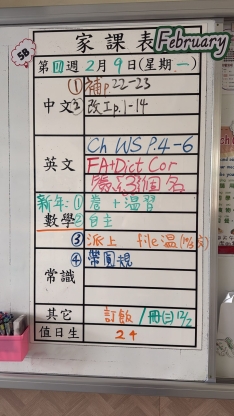 家課表 February
5B
第四週2月9日(星期一)
中文 ①補p22-23
②改工p.1-14
英文 Ch WS P.4-6
FA+Dict Cor
簽3個名
新年: ①卷+溫習
數學 ②自主
③派上 file溫(中文)
④帶圓規
常識
其它 訂飯/冊(三)12/2
值日生 24